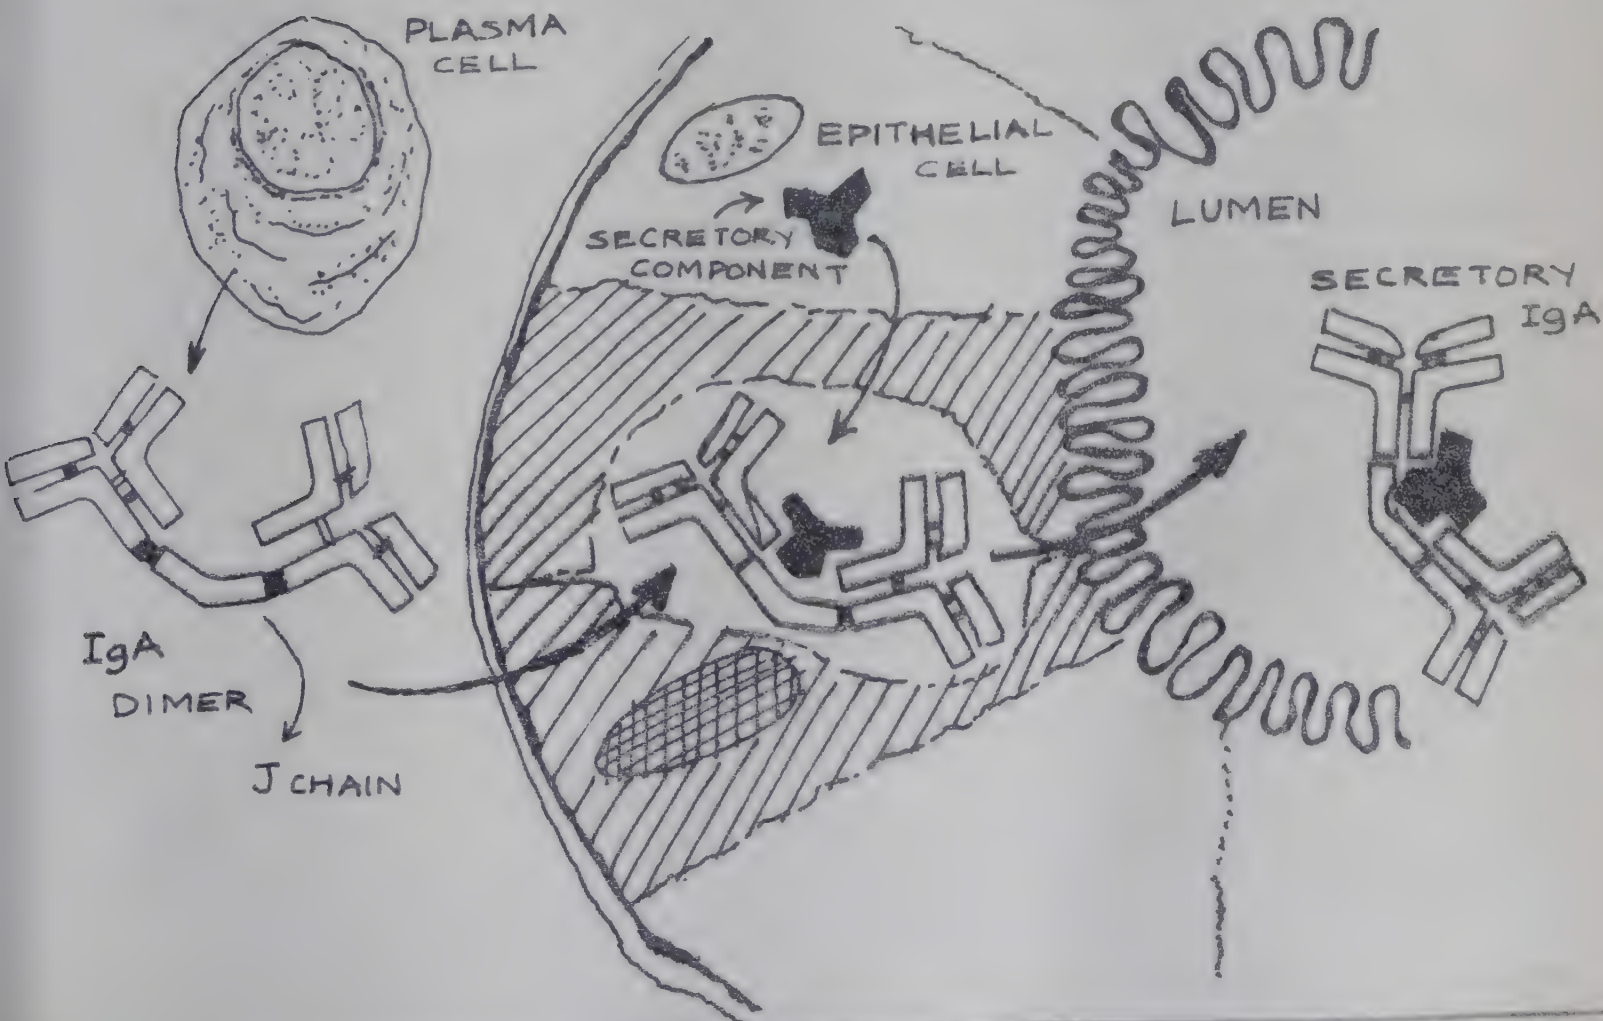 PLASMA
CELL
EPITHELIAL
CELL
SECRETORY
COMPONENT
LUMEN
SECRETORY
IgA
IgA
DIMER
J CHAIN